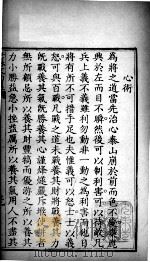 心術
為將之道當先治心泰山崩於前而色不變麋鹿
興於左而目不瞬然後可以制利害可以待敵凡
兵上義不義雖利勿動非一動之為利害而他日
將有所不可措手足也夫惟義可以怒士士以義
怒可與百戰凡戰之道未戰養其財將戰養其力
既戰養其氣既勝養其心謹烽燧嚴斥堠使耕者
無所顧忌所以養其財豐犒而優游之所以養其
力小勝益急小挫益厲所以養其氣用人不盡其